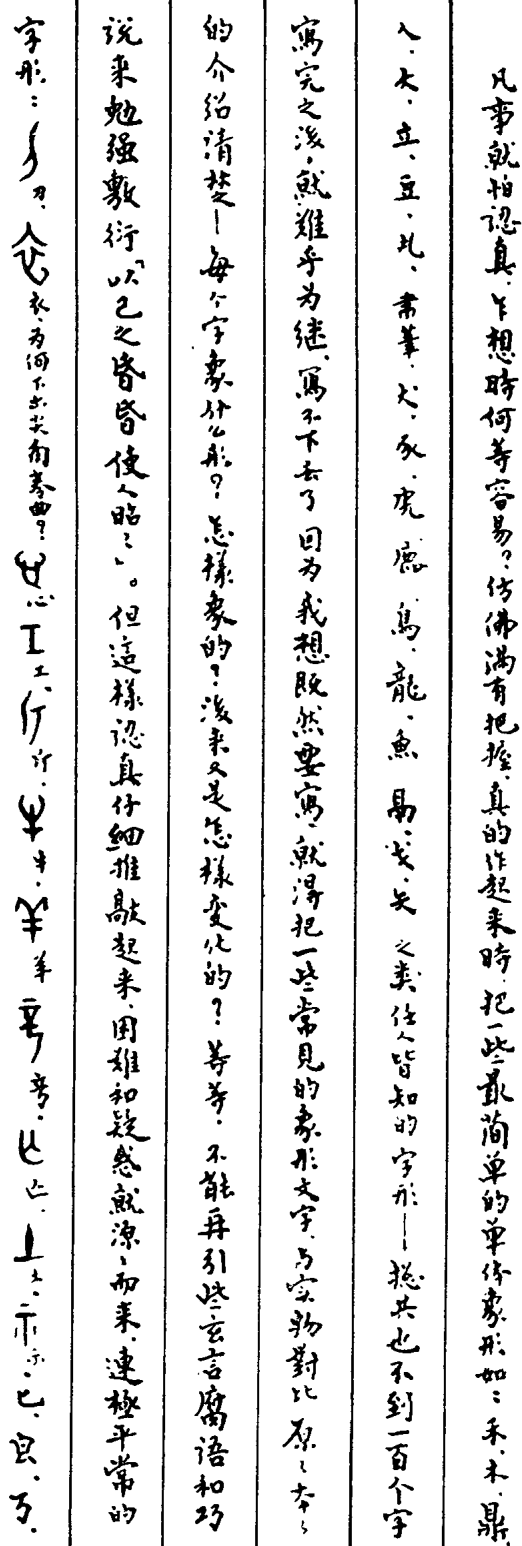 凡事就怕認真、乍想時何等容易？仿佛滿有把握、真的作起来時、把一些最简单的单体象形如：禾、木、鼎、
人、大、立、豆、丮、聿筆、犬、豕、虎、鹿、鳥、龍、魚、易、戈、矢之类任人皆知的字形—搃共也不到一百个字
寫完之後，就難乎为继、寫不下去了因为我想既然要寫、就得把一些常見的象形文字、与实物對比原、本、
的介绍清楚—每个字象什么形？怎樣象的？後来又是怎樣变化的？等等．不能再引些玄言腐語和巧
说来勉强敷衍「以己之昏昏使人昭、」。但這樣認真仔细推敲起来、困難和疑惑就源、而来、連極平常的
字形：刀、衣、为何下出尖而卷曲？心、工、行、牛、羊、亡、上、示、匕、